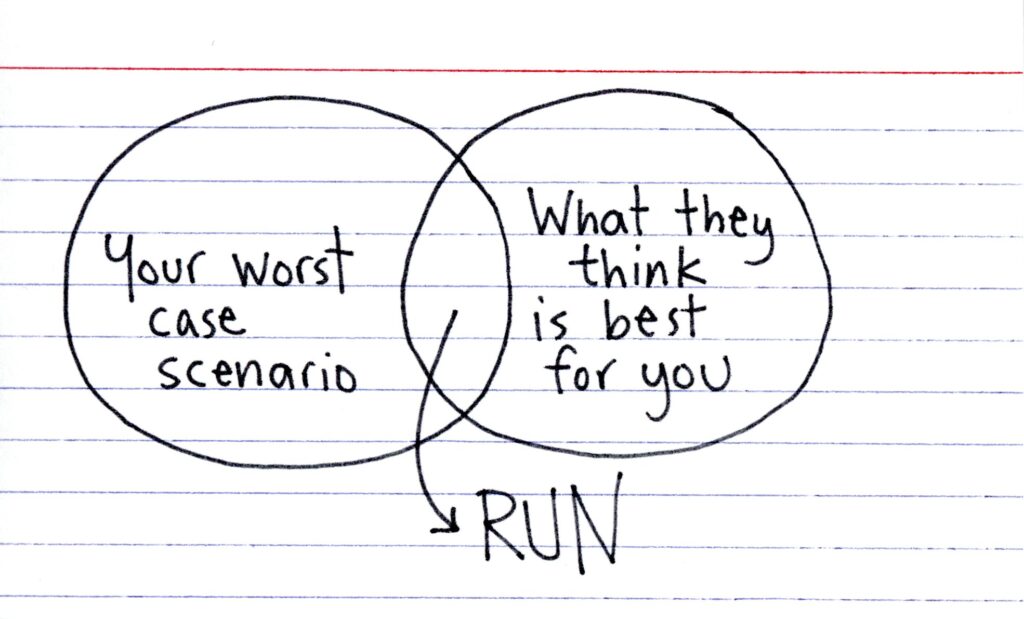 Your worst
case
scenario
What they
think
is best
for you
RUN